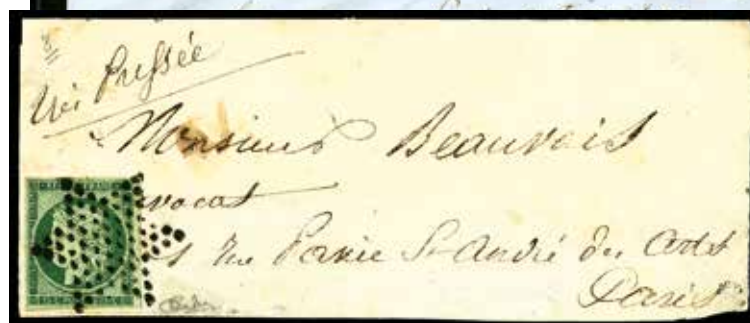 très Pressée
Monsieur Beauvais
avocat
1 rue Pavée St André des Arts
Paris